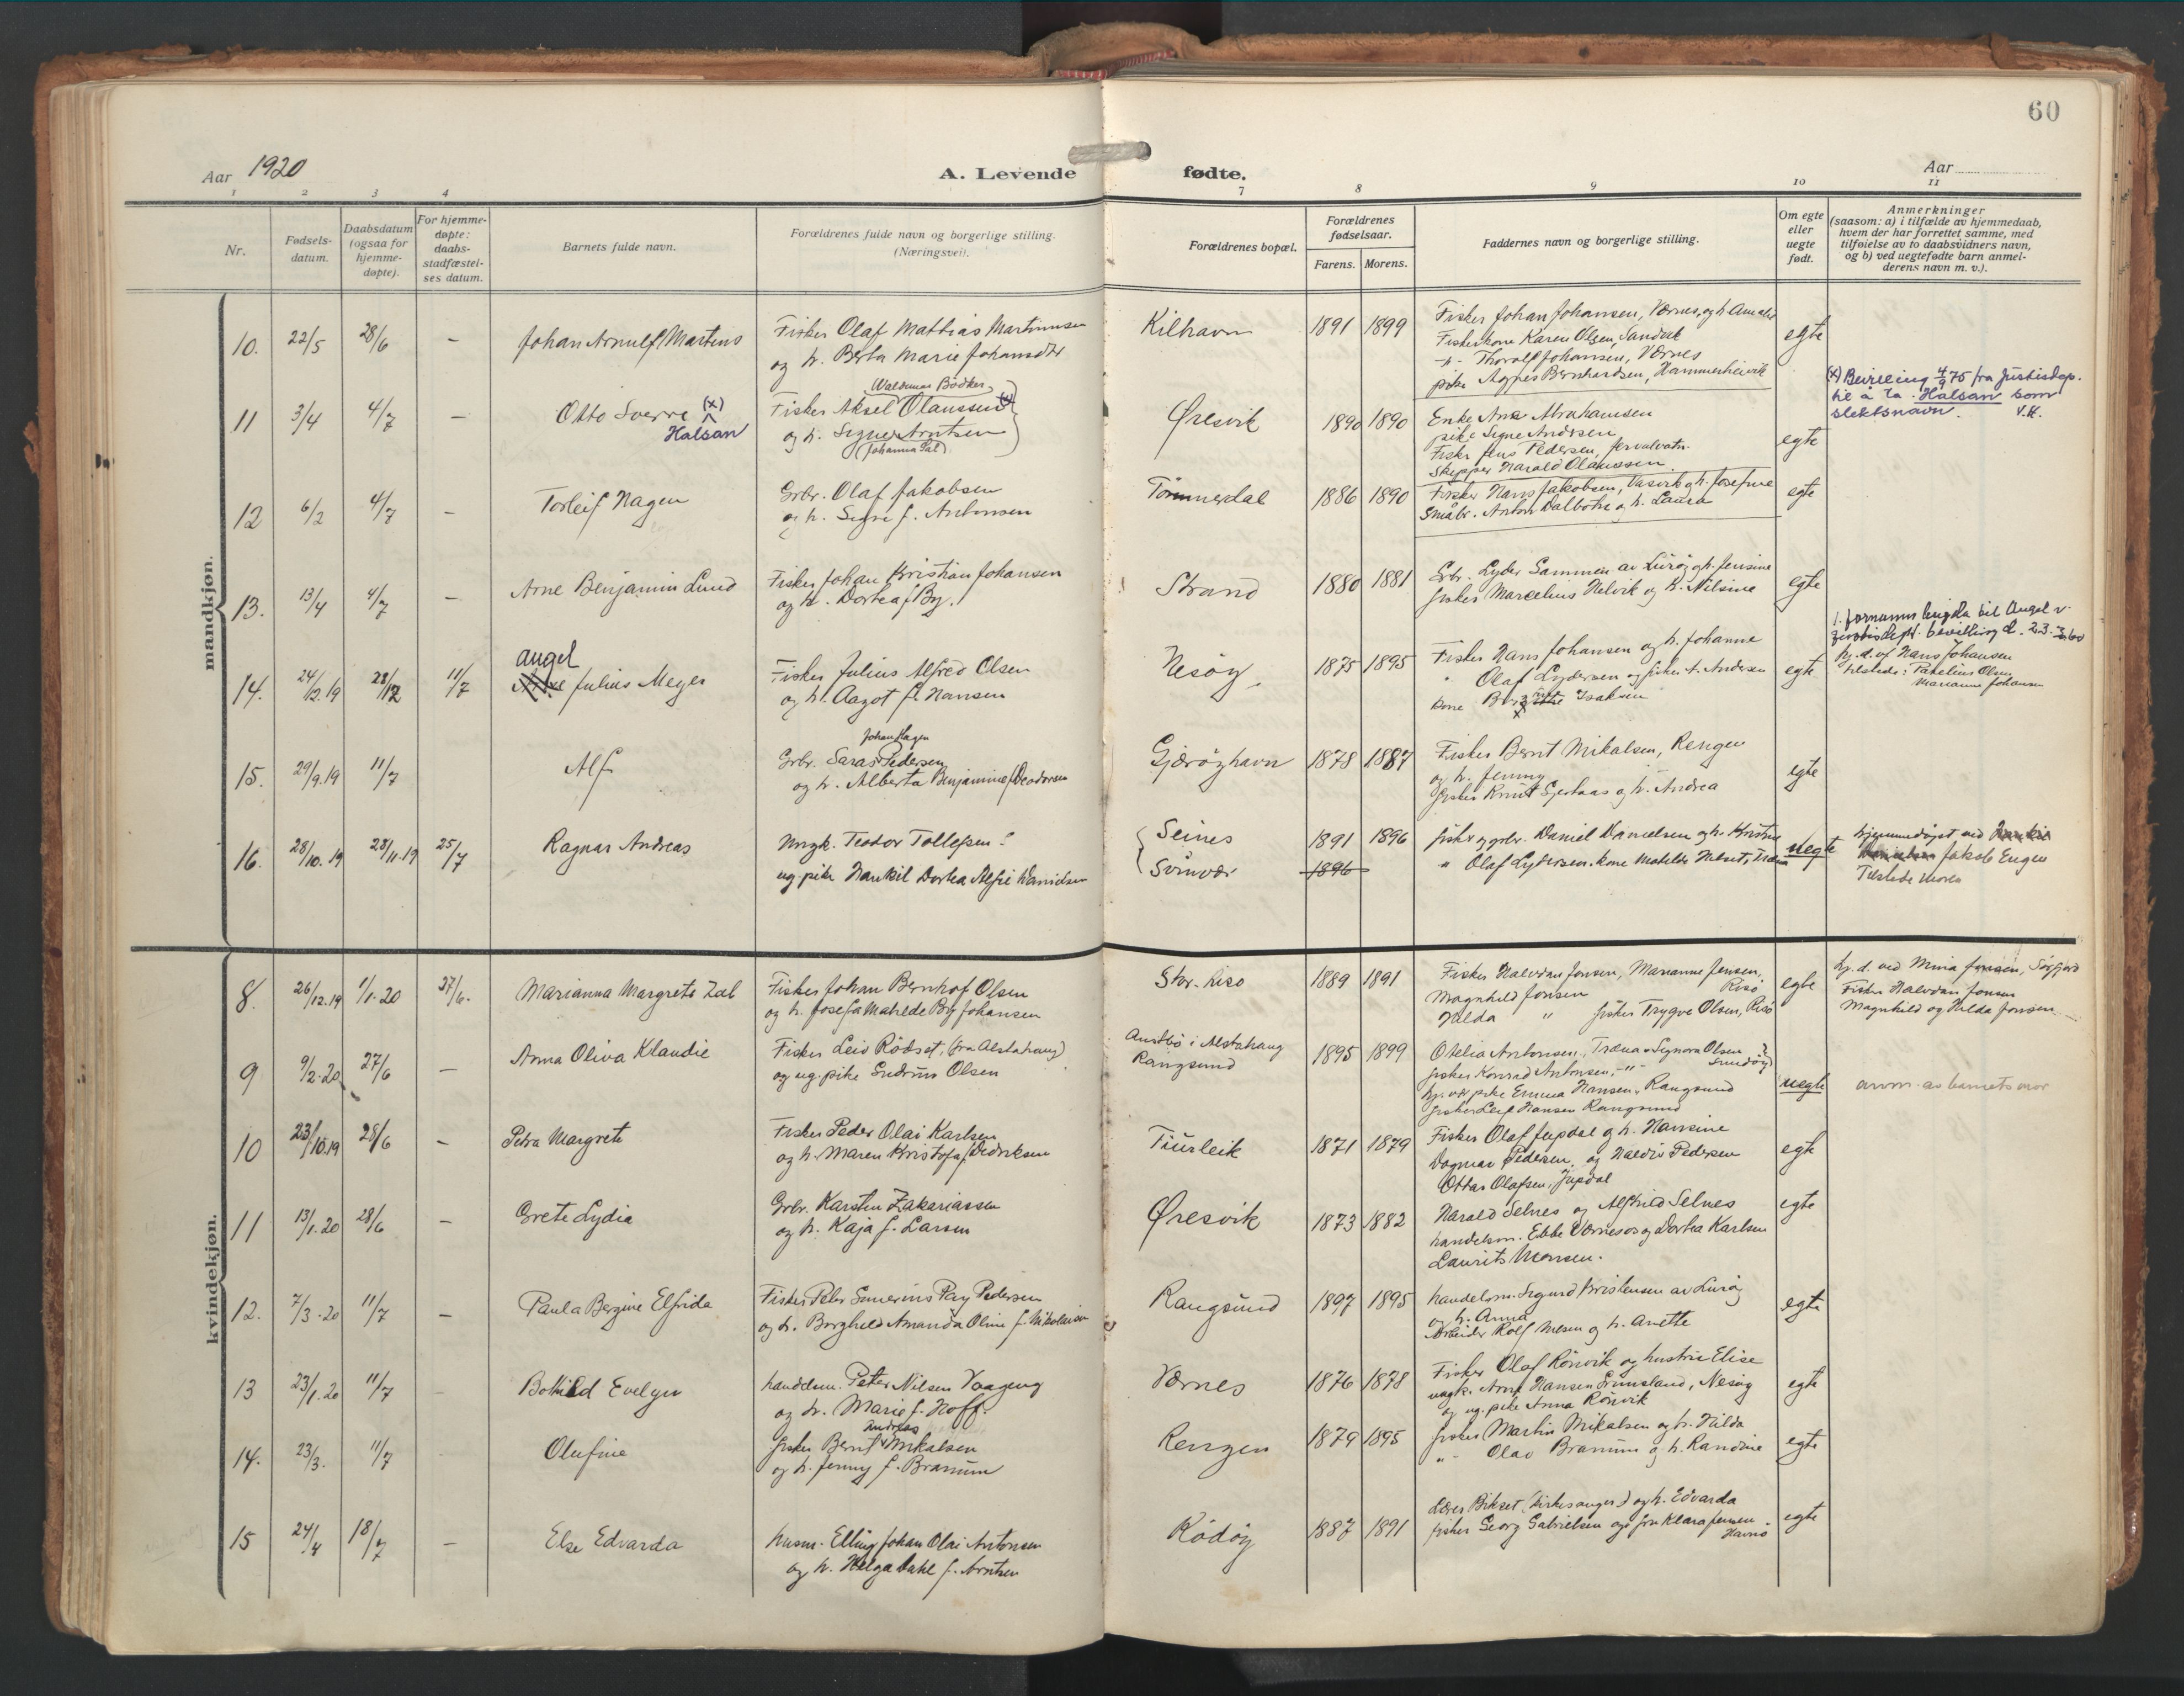 60
Aar 1920
A. Levende fødte.
Aar
1 2 3 4 7 8 9 10 11
Nr.
Fødsels-
datum.
Daabsdatum
(ogsaa for
hjemme-
døpte).
For hjemme-
døpte:
daabs-
stadfæstel-
ses datum.
Barnets fulde navn.
Forældrenes fulde navn og borgerlige stilling.
(Næringsvei).
Forældrenes bopæl.
Forældrenes
fødselsaar.
Farens. Morens.
Faddernes navn og borgerlige stilling.
Om egte
eller
uegte
født.
Anmerkninger
(saasom: a) i tilfælde av hjemmedaab,
hvem der har forrettet samme, med
tilføielse av to daabsvidners navn,
og b) ved uegtefødte barn anmel-
derens navn m. v.).
mandkjøn.
10. 22/5 28/6 - Johan Arnulf Martens
Fisker Olaf Mathias Martinusen
og h. Berta Marie Johansdtr
Kilhavn 1891 1899
Fisker Johan Johansen, Værnes, og h. Amalie
Fiskerkone Karen Olsen, Sandvik
-"- Thoralf Johansen, Værnes
pike Agnes Bernhardsen, Hammerheivik
egte
11 3/4 4/7 - Otto Sverre (x)
Halsan
Waldemar Bödker
Fisker Aksel Olaussen (x)
og h. Signe Arntsen
(Johanna Pal)
Øresvik 1890 1890
Enke Ane Abrahamsen
pike Signe Andersen
Fisker Jens Pedersen,
Skipper Harald Olaussen
egte
(x) Bevilling 4/9 75 fra Justisdep.
til å ta Halsan som
slektsnavn. V.K.
12 6/2 4/7 - Torleif Hagen
Grbr. Olaf Jakobsen
og h. Signe f. Antonsen
Tømmerdal 1886 1890
Fisker Hans Jakobsen, Vasvik og h. Josefine
Småbr. Anton Dalbotn og h. Laura
egte
13. 13/4 4/7 - Arne Benjamin Lund
Fisker Johan Kristian Johansen
og h. Dortea f By.
Strand 1880 1881
Grbr. Lyder Sammen av Lurøy og h. Jensine
fisker Marcelius Helvik og h. Nilsine
egte
14. 24/12.19 28/12 11/7
Angel
Julius Meyer
Fisker Julius Alfred Olsen
og h. Aagot f. Hansen
Nesøy. 1875 1895
Fisker Hans Johansen og h. Johanne
" Olaf Lydersen og fisker A. Andersen
kone Isaksen
egte
1. fornavn lengda til Angel v.
justisdept. bevilling d. 23.
hj. d. af Hans Johansen
tilstede: Pakelius Olsen
Marianne Johansen
15. 29/9.19 11/7 Alf
Johan Hagen
Grbr. Saras Pedersen
og h. Alberta Benjamine f Deodorsen
Gjærøyhavn 1878 1887
Fisker Bernt Mikalsen, Rengen
og h. Jenny
fisker Knut Sjerhaas og h. Andrea
egte
16. 28/10.19 28/11.19 25/7 Ragnar Andreas
Ungk. Teodor Tollefsen
ug. pike Hankil Dortea Alfie Danielsen
Seines
Svinvær
1891 1896
1896
fisker og grbr. Daniel Danielsen og h. Kristine
" Olaf Lydersen. kone Matelde Ment, Træna
uegte
hjemmedøpt ved
Jakob Eugen
Tilstede Moren
kvindekjøn.
8. 26/12.19 1/1.20 27/6. Marianna Margrete Zal
Fisker Johan Bernhof Olsen
og h. Josefa Matelde By Johansen
Stor. Risø 1889 1891
Fisker Halvdan Jonsen, Marianne Jensen,
Risø
Magnhild Jonsen
Hilda " fisker Trygve Olsen, Risø
egte
hj. d. ved Mina Jonsen, Sørfjord
Fisker Halvdan Jonsen
Magnhild og Hilda Jonsen
9 9/2.20 27/6 - Anna Oliva Klaudie
Fisker Leiv Rödset, (fra Alstahaug)
og ug. pike Gudrun Olsen
Austbö i Alstahaug
Rangsund
1895 1899
Otelia Antonsen, Træna Signora Olsen
Sundøy
fisker Konrad Antonsen, -"-
hj. v. pike Emma Hansen, Rangsund
fisker Leif Hansen Rangsund
uegte
anm. av barnets mor
10 23/10.19 28/6 - Petra Margrete
Fisker Peder Olai Karlsen
og h. Maren Kristofa f Didriksen
Tiurleik 1871 1879
Fisker Olaf Jupdal og h. Hansine
Dagmar Pedersen og Haldis Pedersen
Ottar Olafsen, Jupdal
egte
11 13/1.20 28/6 - Grete Lydia
Grbr. Karsten Zakariassen
og h. Kaja f. Larsen
Øresvik 1873 1882
Harald Selnes og Alfhild Selnes
handelsm. Ebbe Værnesos og Dortea Karlsen
Laurits Monsen.
egte
12. 7/3.20 11/7 - Paula Bergine Elfrida
Fisker Peder Severins Ray Pedersen
og h. Borghild Amanda Oline f. Nikolaisen
Rangsund 1897 1895
handelsm. Sigurd Kristensen av Lurøy
og h. Anna
Arbeider Rolf Nilsen og h. Anette
egte
13 23/1.20 11/7 - Bothild Evelyn
handelsm. Peter Nilsen Vaageng
og h. Marie f. Hoff.
Værnes 1876 1878
Fisker Olaf Rönvik og hustru Elise
ungk. Arnt Hansen Grimsland, Nesøy
og ug. pike Anna Rönvik
egte
14. 23/3. 11/7 - Olufine
Andreas
fisker Bernt Mikalsen
og h. Jenny f. Bramun
Rengen 1879 1895
fisker Martin Mikalsen og h. Hilda
-"- Olav Bramun og h. Randine
egte
15 24/4 18/7 - Else Edvarda
husm. Elling Johan Olai Antonsen
og h. Helga Dahl f. Arntsen
Rödöy 1887 1891
Lærer Bikset (kirkesanger) og h. Edvarda
fisker Georg Gabrielsen og fru Klara Jensen
Havnø
egte